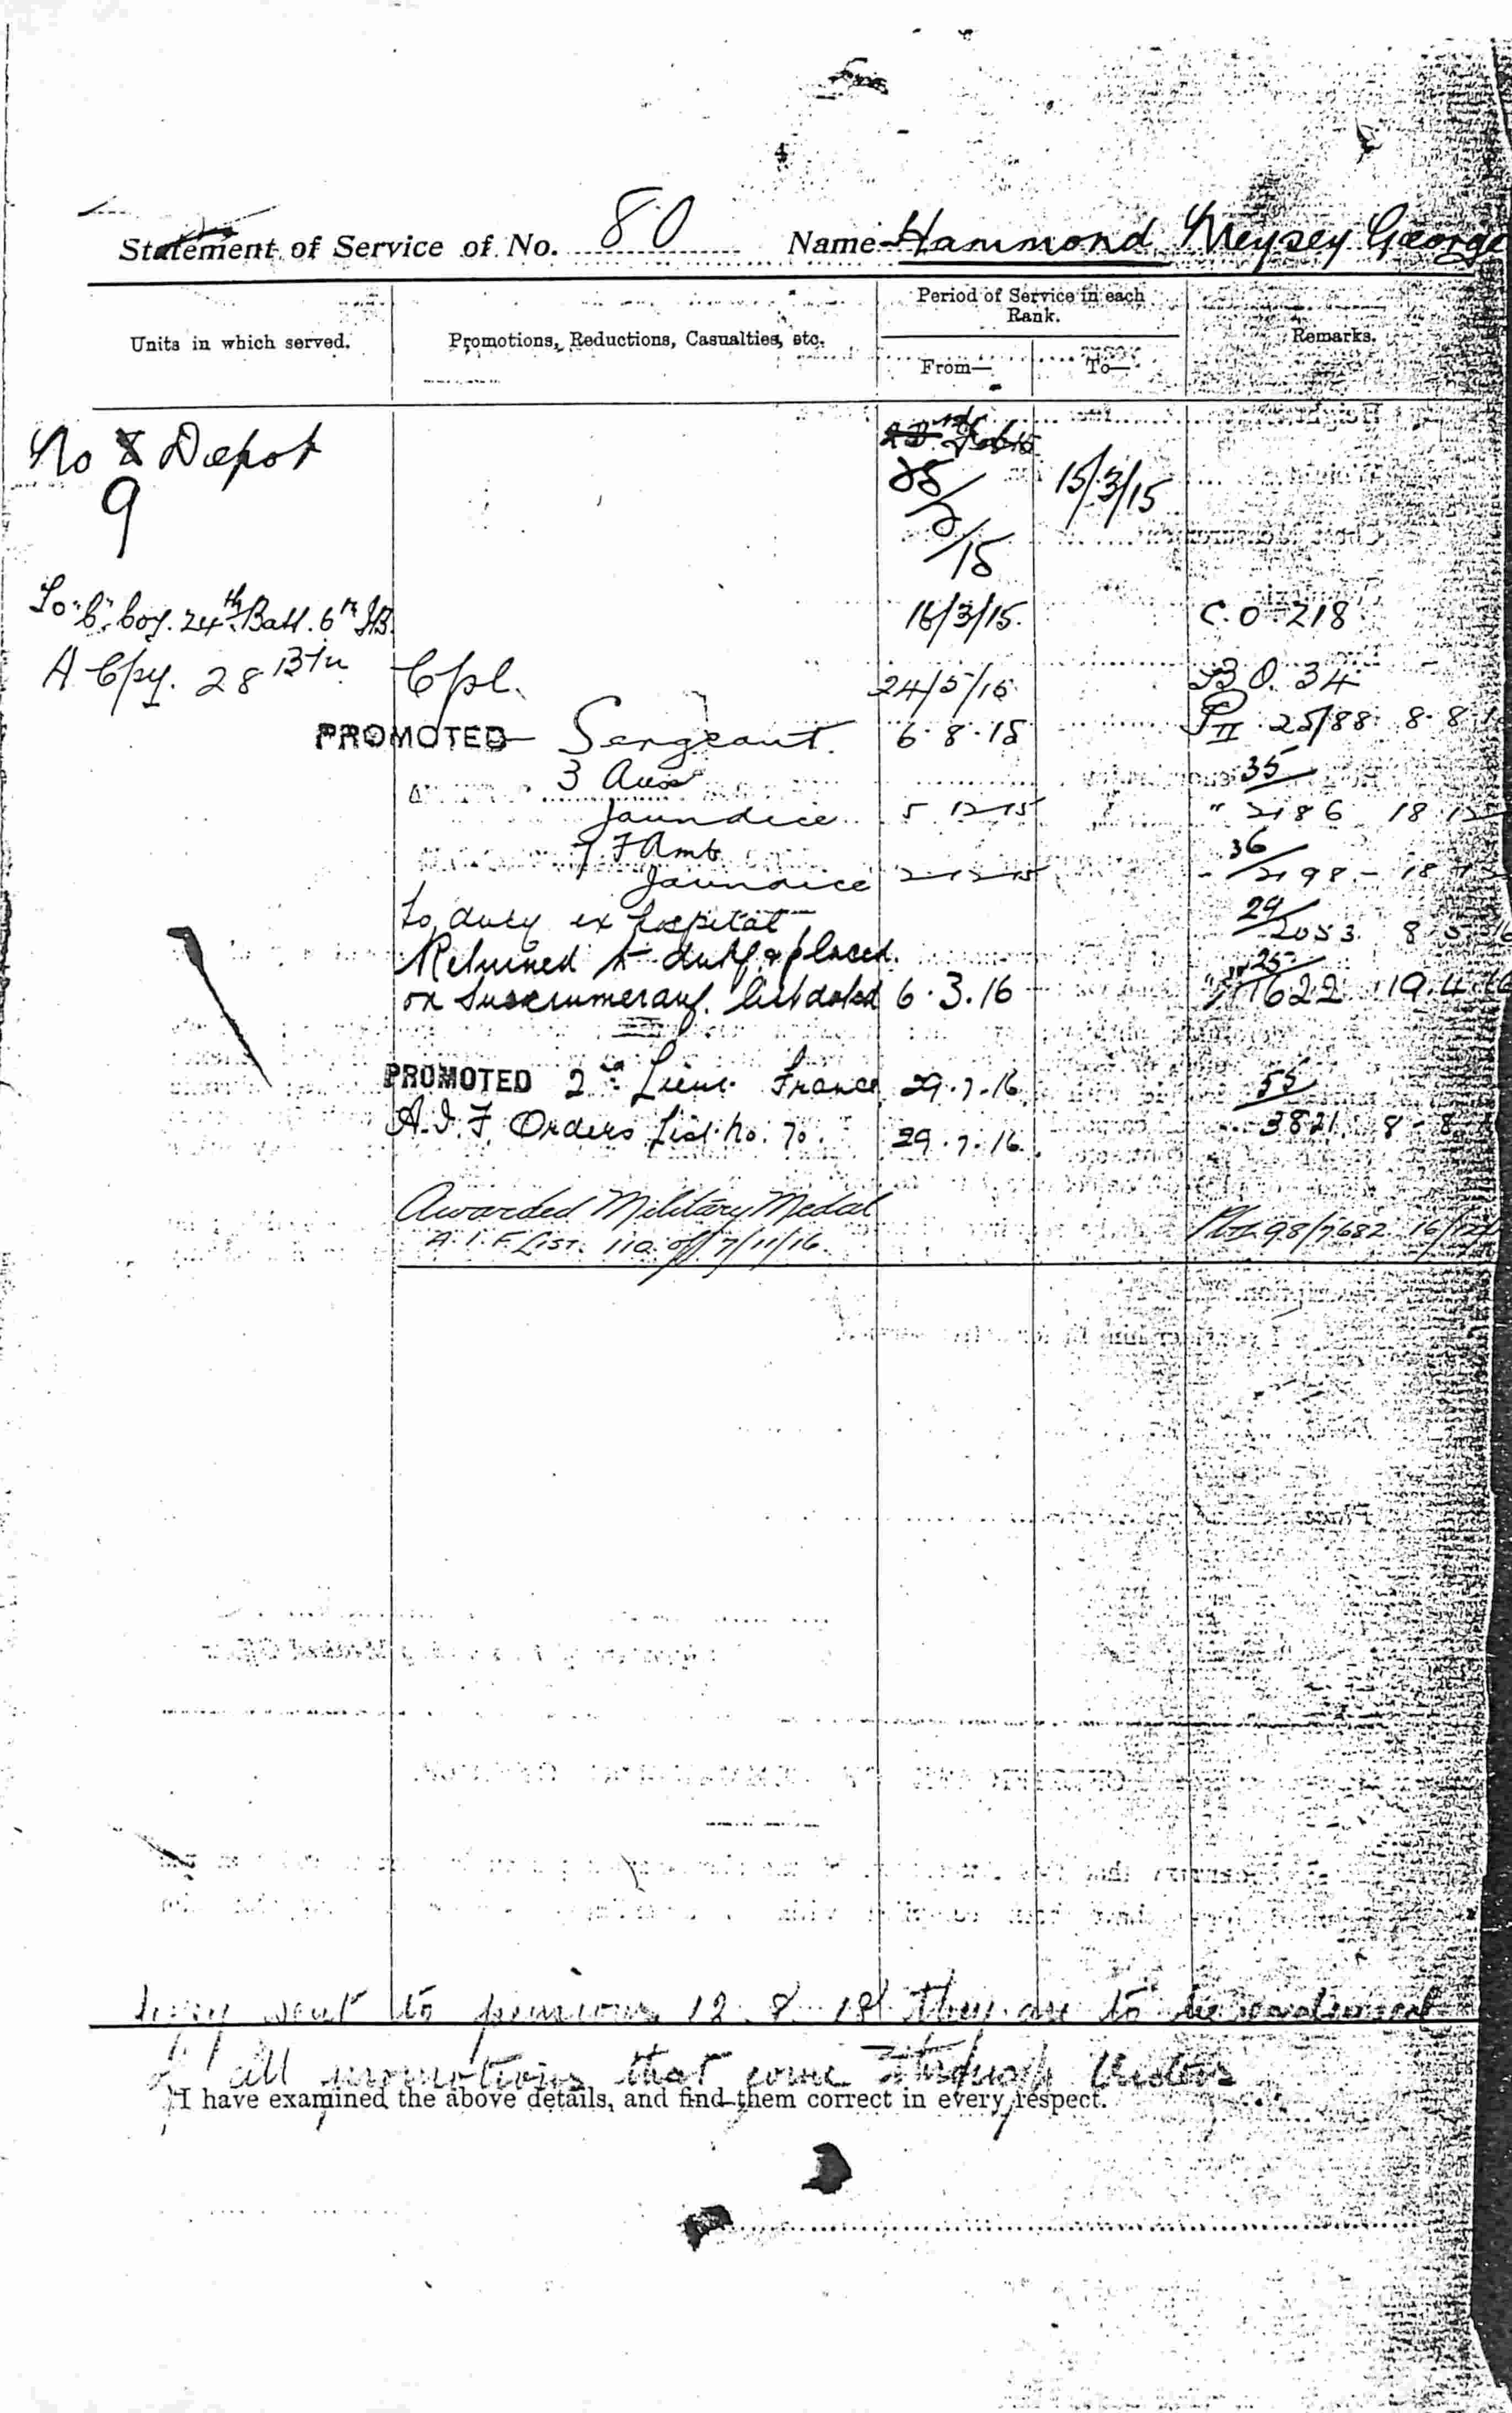 Statement of Service of No. 80 Name Hammond Meysey George
Units in which served.
Promotions, Reductions, Casualties, etc.
Period of Service in each Rank.
From—
To—
Remarks.
No 8 Depot
9
15/3/15
To "C" Coy. 24th Batt. 6th I.B. 16/3/15. C.O. 218
A Cpy. 28 Btn Cpl. 24/5/15 B.O. 34
PROMOTED Sergeant. 6.8.15 PII 25/88 8.8
3 Aux 35
Jaundice 5 12 15 " 2186 18.12
7 F Amb 36
Jaundice 2 12 15 2198 - 18
to duty ex hospital 29/2053 8.5.16
Returned to duty & placed
on Supernumerary list dated 6.3.16 25/1622 19.4.16
PROMOTED 2nd Lieut. France 29.7.16 55
A.I.F. Orders List No. 70. 29.7.16. 3821 8-8
Awarded Military Medal
A.I.F. LIST. 110. of 7/11/16. 98/7682 16/12
sent to pensions 12.8.18. They are to be
of all promotions that come through
I have examined the above details, and find them correct in every respect.